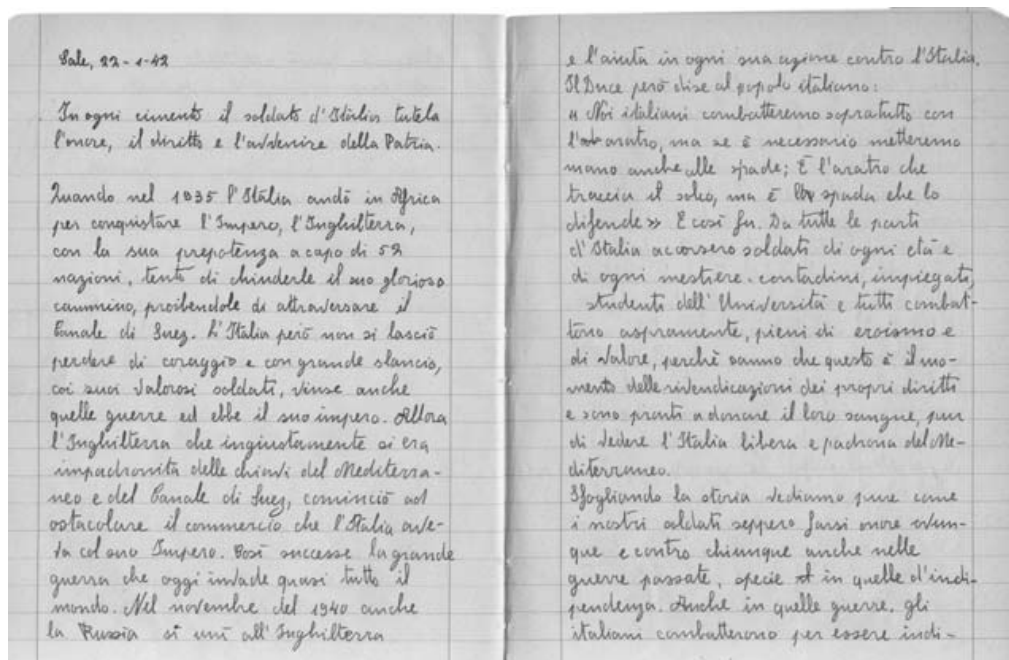 Sale, 22-1-42
In ogni cimento il soldato d'Italia tutela
l'onore, il diritto e l'avvenire della Patria.
Quando nel 1935 l'Italia andò in Africa
per conquistare l'Impero, l'Inghilterra,
con la sua prepotenza a capo di 52
nazioni, tentò di chiuderle il suo glorioso
cammino, proibendole di attraversare il
Canale di Suez. L'Italia però non si lasciò
perdere di coraggio e con grande slancio,
coi suoi valorosi soldati, vinse anche
quelle guerre ed ebbe il suo impero. Allora
l'Inghilterra che ingiustamente si era
impadronita delle chiavi del Mediterra-
neo e del Canale di Suez, cominciò ad
ostacolare il commercio che l'Italia ave-
va col suo Impero. Così successe la grande
guerra che oggi invade quasi tutto il
mondo. Nel novembre del 1940 anche
la Russia si unì all'Inghilterra
e l'aiuta in ogni sua azione contro l'Italia.
Il Duce però dise al popolo italiano:
« Noi italiani combatteremo sopratutto con
l'aratro, ma se è necessario metteremo
mano anche alle spade; È l'aratro che
traccia il solco, ma è la spada che lo
difende » E così fu. Da tutte le parti
d'Italia accorsero soldati di ogni età e
di ogni mestiere. contadini, impiegati,
studenti dell'Università e tutti combat-
tono aspramente, pieni di eroismo e
di valore, perchè sanno che questo è il mo-
mento delle rivendicazioni dei propri diritti
e sono pronti a donare il loro sangue, pur
di vedere l'Italia libera e padrona del Me-
diterraneo.
Sfogliando la storia vediamo pure come
i nostri soldati seppero farsi onore ovun-
que e contro chiunque anche nelle
guerre passate, specie in quelle d'indi-
pendenza. Anche in quelle guerre, gli
italiani combatterono per essere indi-